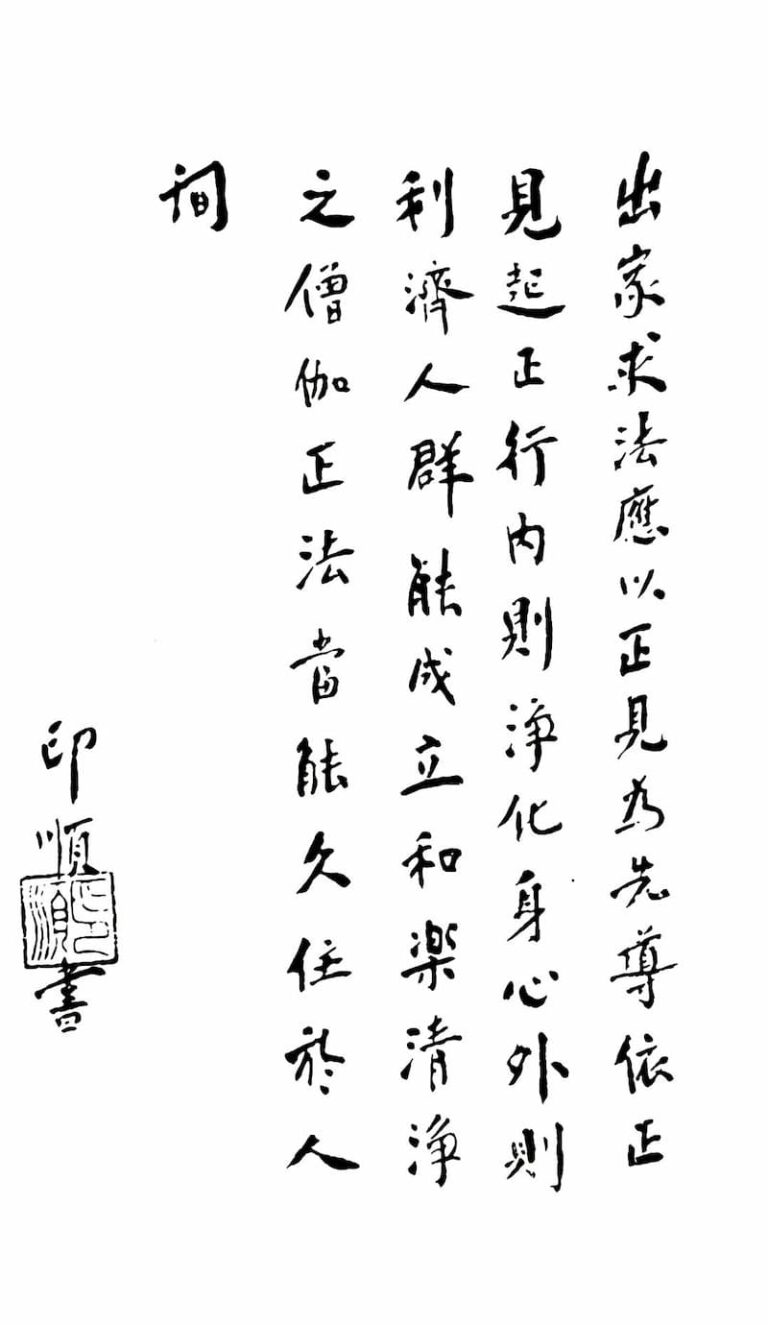 出家求法應以正見為先導依正
見起正行內則淨化身心外則
利濟人群能成立和樂清淨
之僧伽正法當能久住於人
間
印順書
印順